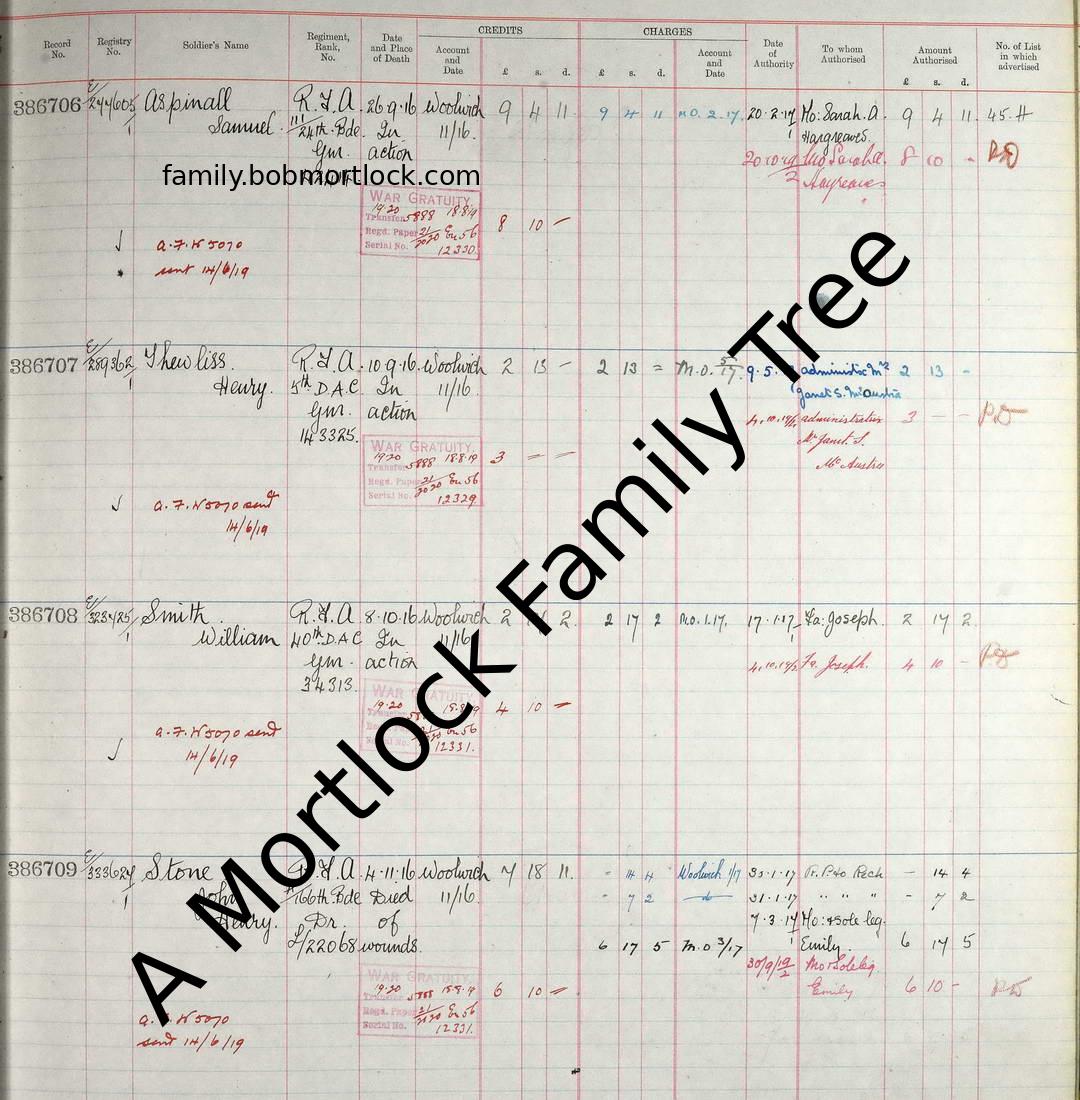 Record No. Registry No. Soldier's Name Regiment, Rank, No. Date and Place of Death CREDITS Account and Date £ s. d. CHARGES £ s. d. Account and Date Date of Authority To whom Authorised Amount Authorised £ s. d. No. of List in which advertised
386706 E/244605 Aspinall R.F.A. 26.9.16 Woolwich 9 4 11 9 4 11 M.O. 2.17. 20.2.17 Mo: Sarah. A. 9 4 11 45.H
1 Samuel. 24th. Bde. In 11/16. 1 Hargreaves.
Gnr. action Mo Sarah A. 8 10 -
family.bobmortlock.com
Hargreaves
WAR GRATUITY
19.20 5888 18.8.19 8 10 -
Transfer
Regd. Paper 21/2020 En 56
Serial No. 12330.
a.F.W 5070
sent 14/6/19
386707 E/289362 Thewliss. R.F.A. 10.9.16 Woolwich 2 13 - 2 13 = M.O. 5/17. 9.5. administrix Mrs 2 13 -
1 Henry. 5th D.A.C. In 11/16. Janet S. McAustra
Gnr. action administratrix 3 - -
143325. Mrs Janet. S.
McAustra
WAR GRATUITY.
19.20 5888 18.8.19 3 - -
Transfer
Regd. Paper 21/2020 En 56
Serial No. 12329
a.F.W 5070 sent
14/6/19
386708 E/323425 Smith. R.F.A. 8.10.16 Woolwich 2 2 2 17 2 M.O. 1.17. 17.1.17 Fa: Joseph. 2 17 2
1 William 40th D.A.C. In 11/16 1
Gnr. action Fa. Joseph. 4 10 -
34313.
WAR GRATUITY
19.20 4 10 -
En 56
12331.
a.F.W 5070 sent
14/6/19
386709 E/333624 Stone R.F.A. 4.11.16 Woolwich 7 18 11. - 14 4 Woolwich 1/17 Rech - 14 4
1 John 166th Bde Died 11/16. - 7 2 31.1.17 " " " - 7 2
Henry. Dr. of 7.3.17 Mo: & sole leg.
L/22068 wounds. 6 17 5 M.O 3/17 1 Emily. 6 17 5
30/9/19/2 Mo & Sole leg
Emily 6 10 -
WAR GRATUITY.
19.20 5888 18.8.19 6 10 -
Transfer
Regd. Paper 21/2020 En 56
Serial No. 12331.
W 5070
sent 14/6/19
A Mortlock Family Tree